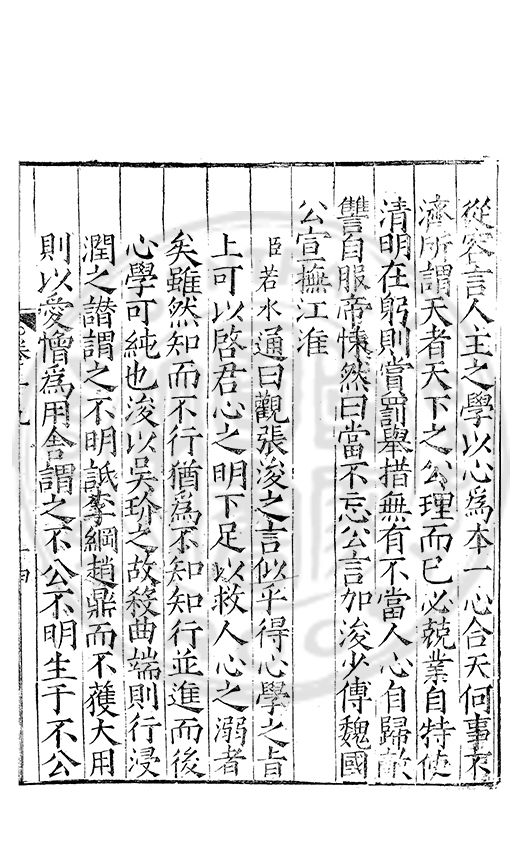 從容言人主之學以心為本一心合天何事不
濟所謂天者天下之公理而已必兢業自持使
清明在躬則賞罰舉措無有不當人心自歸敵
讐自服帝悚然曰當不忘公言加浚少傅魏國
公宣撫江淮
臣若水通曰觀張浚之言似乎得心學之旨
上可以啓君心之明下足以救人心之溺者
矣雖然知而不行猶為不知知行並進而後
心學可純也浚以吳玠之故殺曲端則行浸
潤之譖謂之不明詆李綱趙鼎而不獲大用
則以愛憎為用舍謂之不公不明生于不公